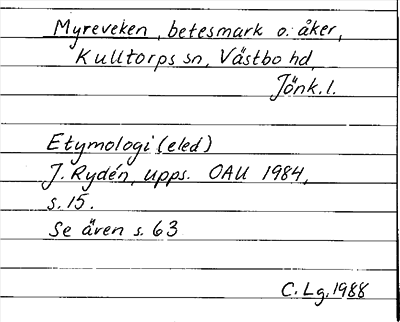 Myreveken, betesmark o. åker,
Kulltorps sn, Västbo hd,
Jönk. l.
Etymologi (eled)
J. Rydén, upps. OAU 1984,
s. 15.
Se även s. 63
C. Lg, 1988